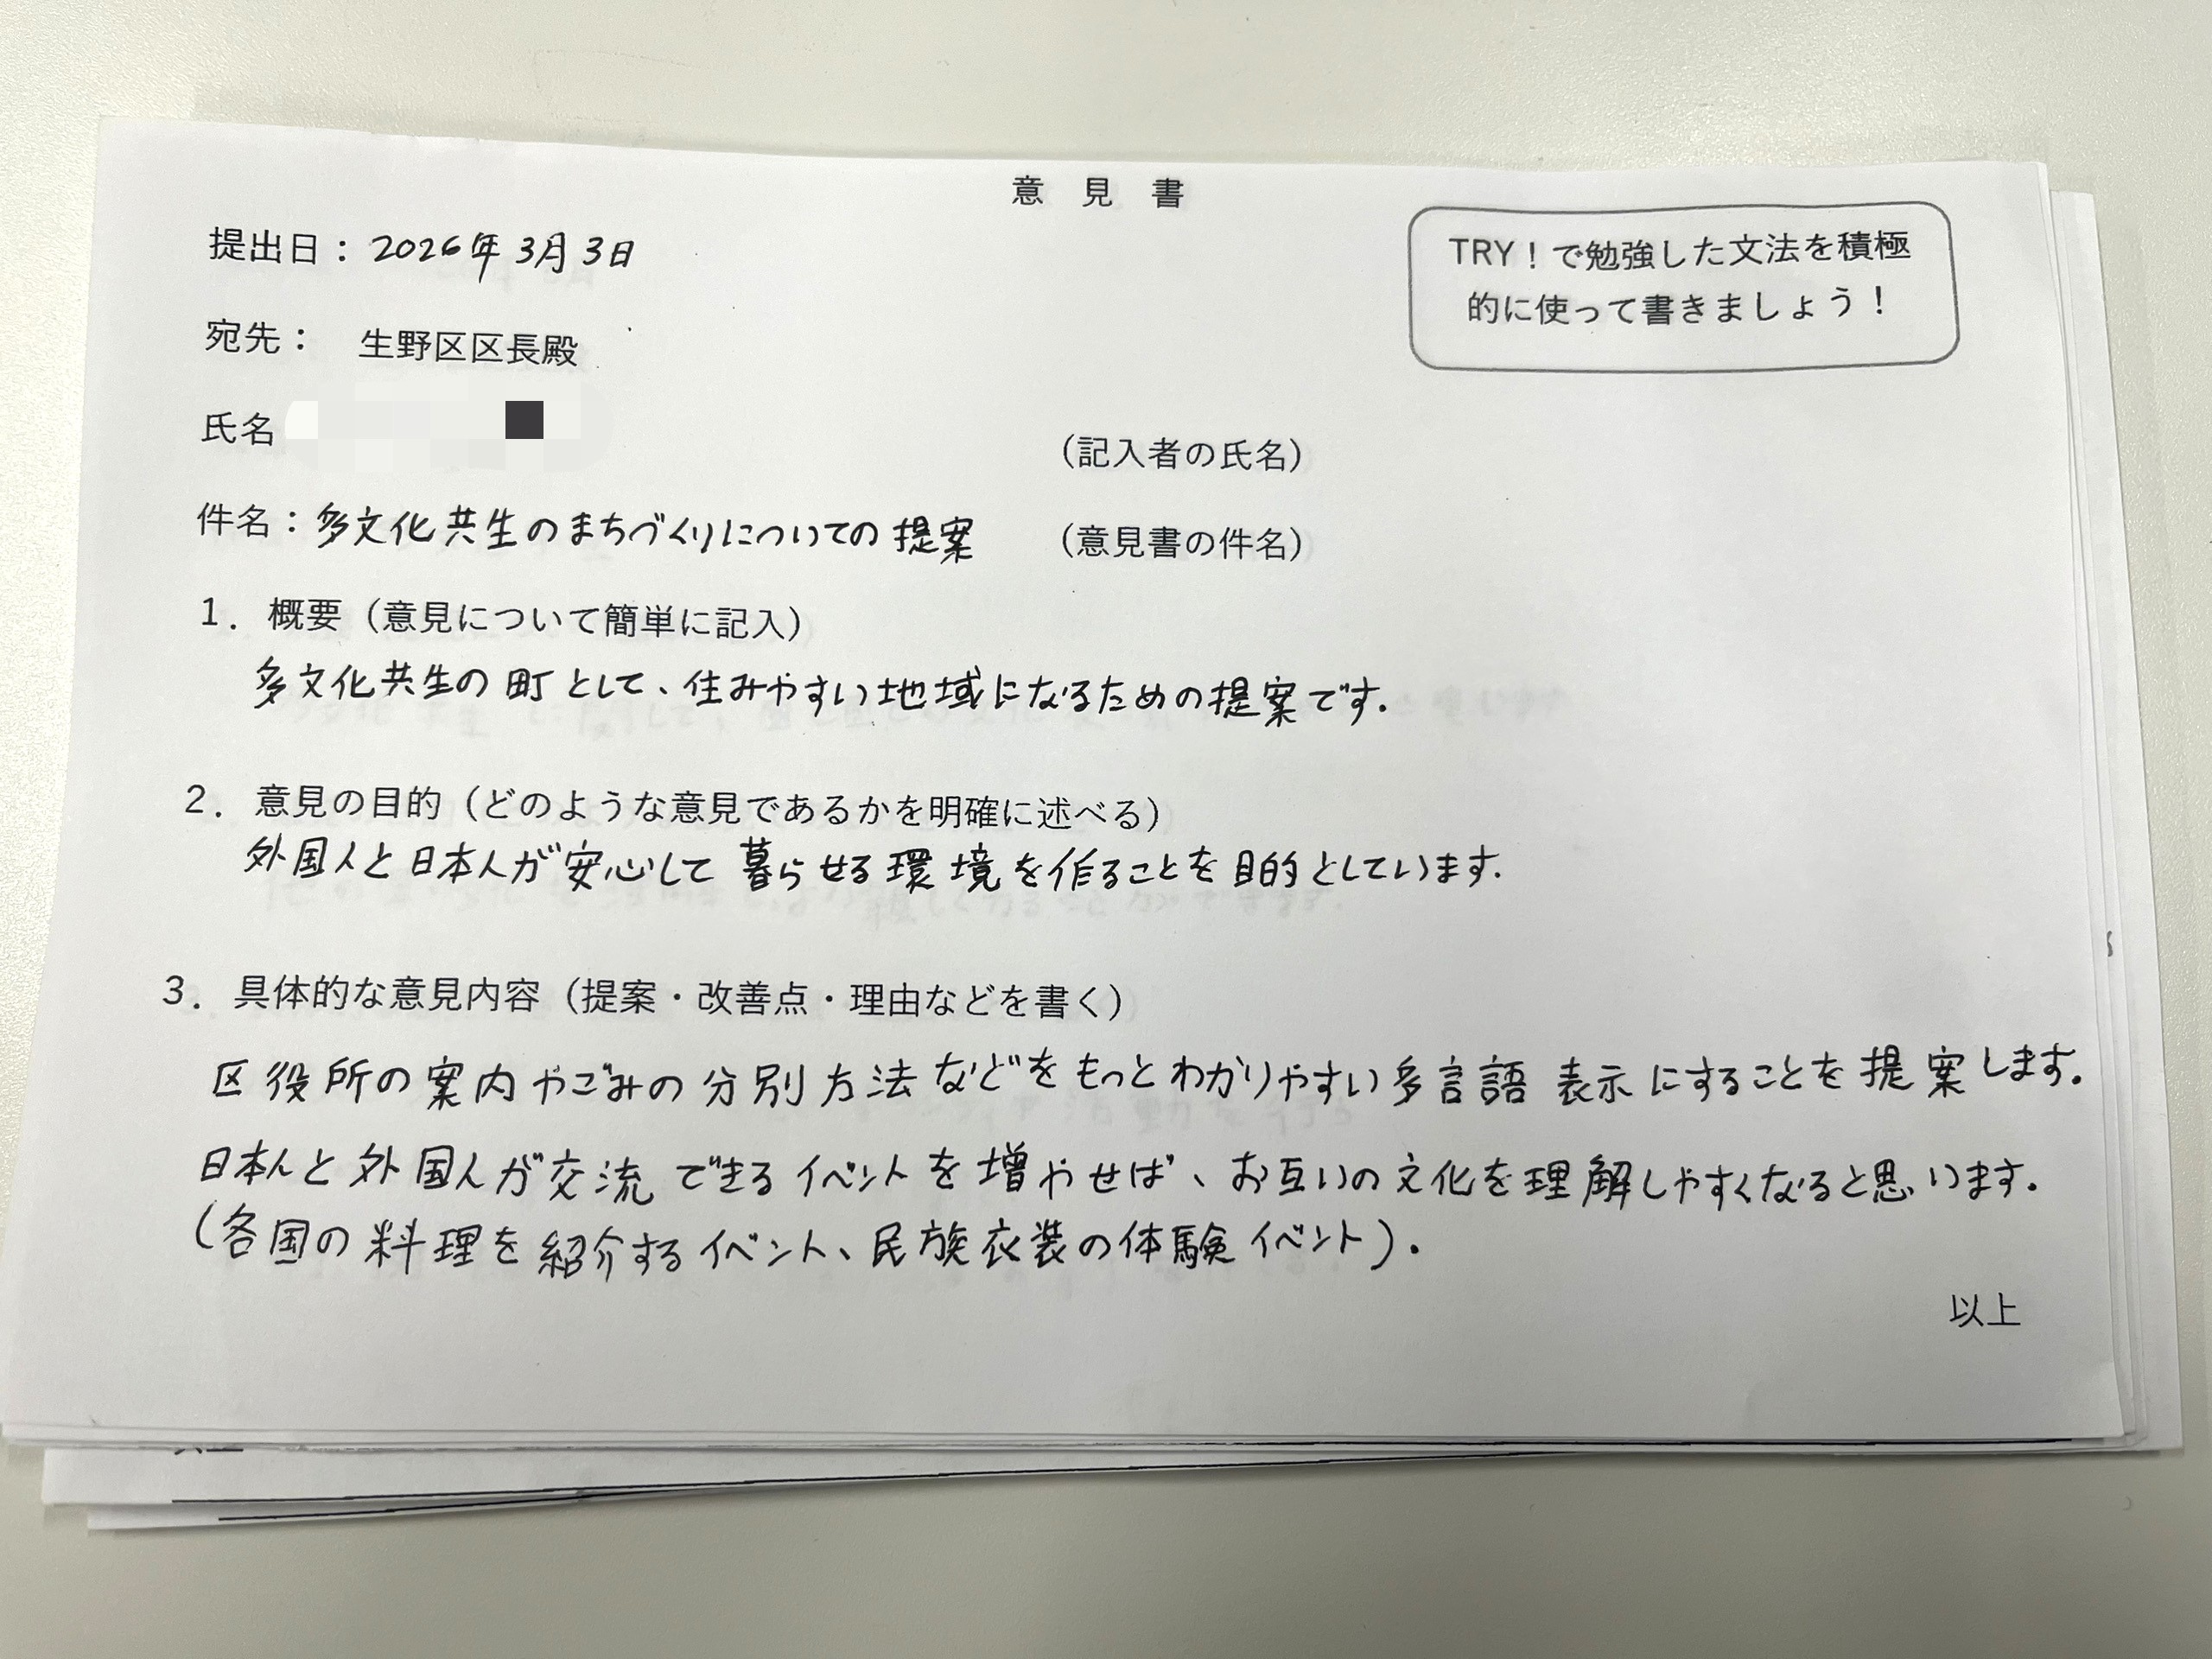 意 見 書
提出日：2026年3月3日
TRY！で勉強した文法を積極
的に使って書きましょう！
宛先：　生野区区長殿
氏名
（記入者の氏名）
件名：多文化共生のまちづくりについての提案
（意見書の件名）
1．概要（意見について簡単に記入）
多文化共生の町として、住みやすい地域になるための提案です．
2．意見の目的（どのような意見であるかを明確に述べる）
外国人と日本人が安心して暮らせる環境を作ることを目的としています．
3．具体的な意見内容（提案・改善点・理由などを書く）
区役所の案内やごみの分別方法などをもっとわかりやすい多言語表示にすることを提案します．
日本人と外国人が交流できるイベントを増やせば、お互いの文化を理解しやすくなると思います．
（各国の料理を紹介するイベント、民族衣装の体験イベント）．
以上